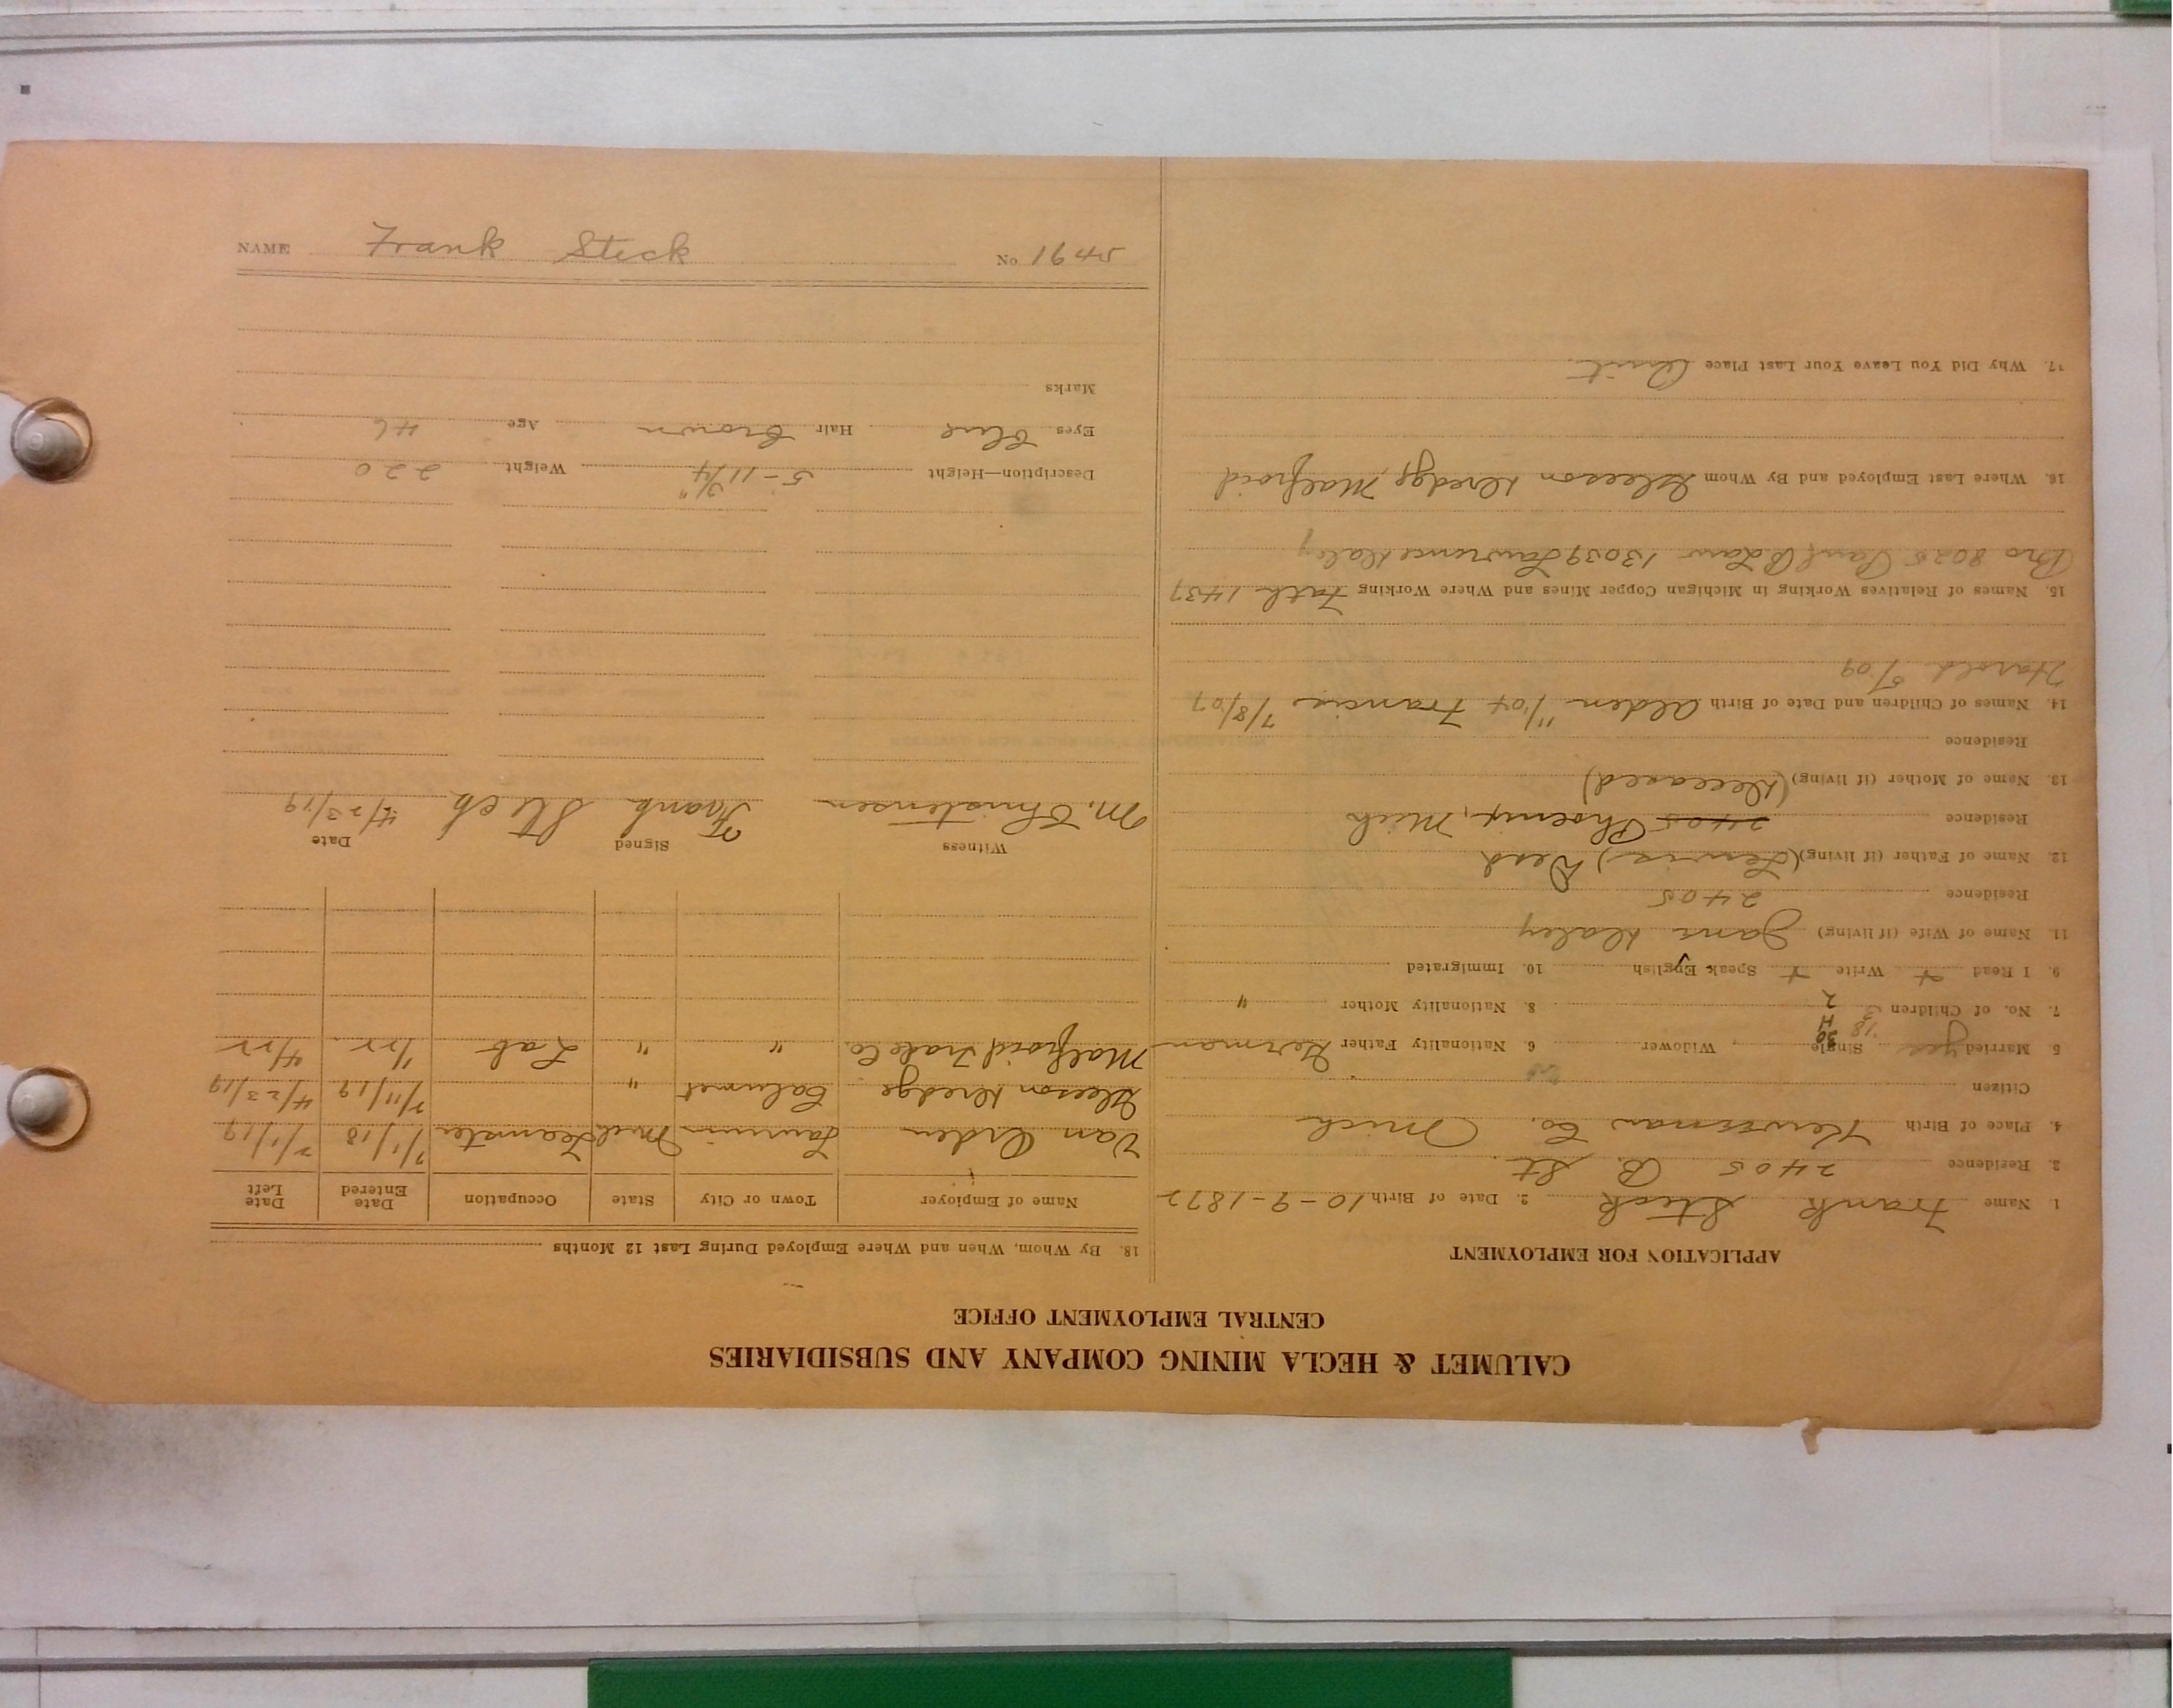 CALUMET & HECLA MINING COMPANY AND SUBSIDIARIES
CENTRAL EMPLOYMENT OFFICE
APPLICATION FOR EMPLOYMENT
1. Name Frank Steck 2. Date of Birth 10-9-1872
3. Residence 2405 B. St.
4. Place of Birth Keweenaw Co. Mich
Citizen
5. Married yes Single Widower 6. Nationality Father German
7. No. of Children 3 8. Nationality Mother "
9. I Read + Write + Speak English 10. Immigrated
11. Name of Wife (if living) Jane Daley
Residence 2405
12. Name of Father (if living) (Lewis) Dead
Residence 2405 Phoenix, Mich
13. Name of Mother (if living) (Deceased)
Residence
14. Names of Children and Date of Birth Alden 11/04 Francis 7/8/07
Harold 5/09
15. Names of Relatives Working in Michigan Copper Mines and Where Working Fath 1437
Bro 8025 Paul B Law 13039 Lawrence Daley
16. Where Last Employed and By Whom Gleeson Dredge, Malfroid
17. Why Did You Leave Your Last Place Quit
18. By Whom, When and Where Employed During Last 12 Months
Name of Employer Town or City State Occupation Date Entered Date Left
Van Orden Laurium Mich Teamster 7/1/18 2/1/19
Gleeson Dredge Calumet " 2/11/19 4/23/19
Malfroid Co. " " Lab 1/22 4/22
Witness Signed Date
M. Christensen Frank Steck 4/23/19
Description—Height 5-11 3/4" Weight 220
Eyes Blue Hair Brown Age 46
Marks
NAME Frank Steck No 16445